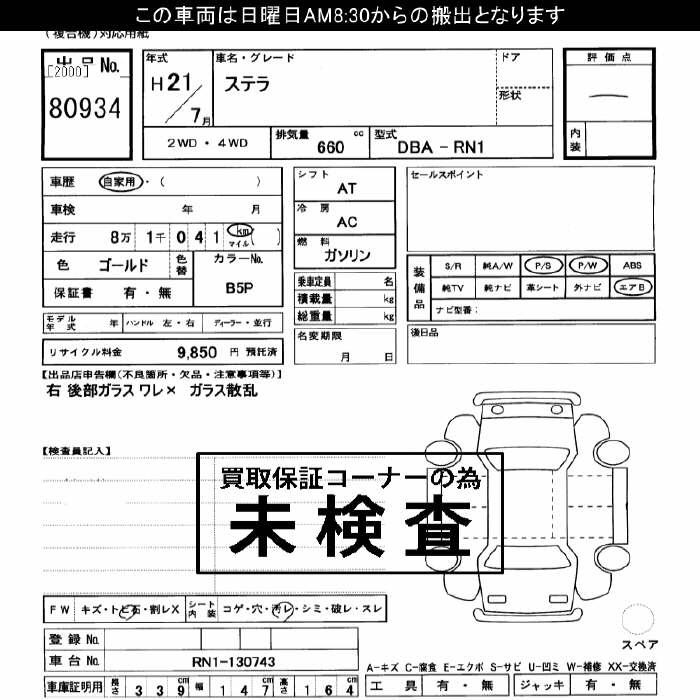 この車両は日曜日AM8:30からの搬出となります
(複合機)対応用紙
出品No.
[2000]
80934
年式
H21/7月
車名・グレード
ステラ
ドア
形状
評価点
内装
2WD・4WD
排気量 660 cc
型式 DBA-RN1
車歴 自家用・( )
車検 年 月
走行 8万 1千 0 4 1 km マイル ( )
色 ゴールド 色替 カラーNo.
B5P
保証書 有・無
モデル年式 年 ハンドル 左・右 ディーラー・並行
リサイクル料金 9,850 円 預託済
シフト
AT
冷房
AC
燃料
ガソリン
乗車定員 名
積載量 kg
総重量 kg
名変期限
月 日
セールスポイント
装備品
S/R 純A/W P/S P/W ABS
純TV 純ナビ 革シート 外ナビ エアB
ナビ型番:
後日品
【出品店申告欄(不良箇所・欠品・注意事項等)】
右 後部ガラス ワレ× ガラス散乱
【検査員記入】
買取保証コーナーの為
未検査
FW キズ・トビ石・割レX シート内装 コゲ・穴・汚レ・シミ・破レ・スレ
登録 No.
車台 No. RN1-130743
車庫証明用 長さ 3 3 9 cm 幅 1 4 7 cm 高さ 1 6 4 cm
スペア
A-キズ C-腐食 E-エクボ S-サビ U-凹ミ W-補修 XX-交換済
工具 有・無 ジャッキ 有・無